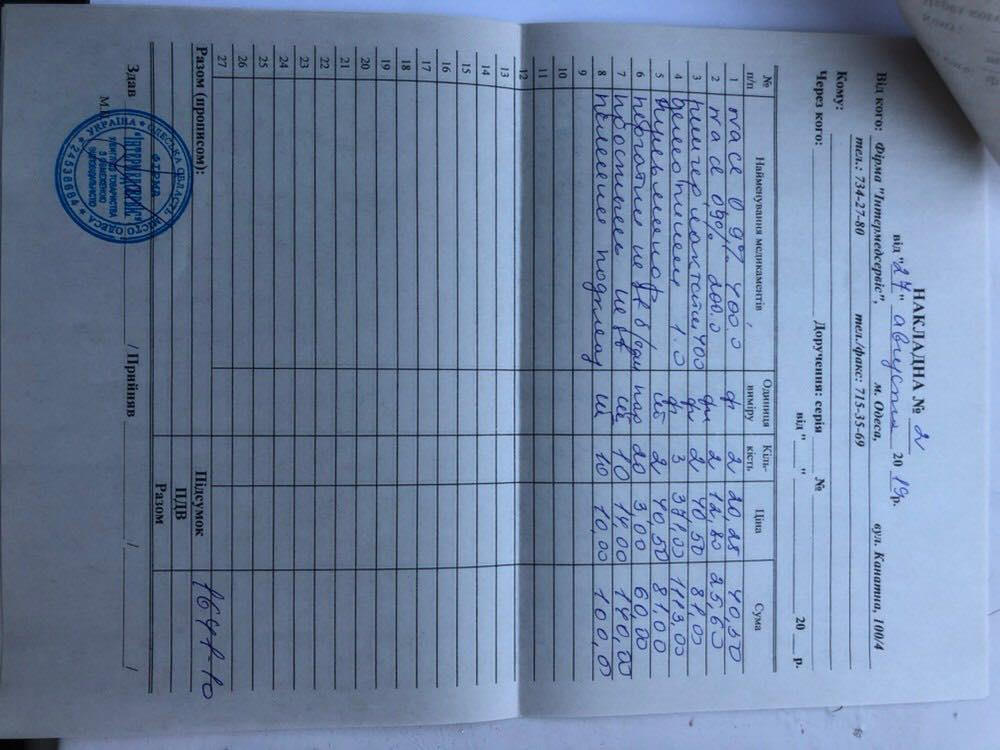 НАКЛАДНА № 2
від "27" августа 2019р.
Від кого: Фірма "Інтермедсервіс", м. Одеса, вул. Канатна, 100/4
тел.: 734-27-80 тел./факс: 715-35-69
Кому:
Через кого: Доручення: серія № від " " 20 р.
№ п/п Найменування медикаментів Одиниця виміру Кіль-кість Ціна Сума
1 na ce 0,9% 400,0 ф 2 20,25 40,50
2 na ce 09% 200.0 фл 2 12,80 25,60
3 рингер лактат 400 фл 2 40,50 81,00
4 1.0 ф 3 371,00 1113,00
5 шт 2 40,50 81,00
6 не пар 20 3,00 60,00
7 простынь не шт 10 14,00 140,00
8 ш 10 10,00 100,0
9
10
11
12
13
14
15
16
17
18
19
20
21
22
23
24
25
26
27
Разом (прописом): Підсумок 1641-10
ПДВ
Разом
Здав / Прийняв / /
М.П.
УКРАЇНА * ОДЕСЬКА ОБЛАСТЬ, МІСТО ОДЕСА * 24538694
ФІРМА
"ІНТЕРМЕДСЕРВІС"
У ВИГЛЯДІ ТОВАРИСТВА
З ОБМЕЖЕНОЮ
ВІДПОВІДАЛЬНІСТЮ